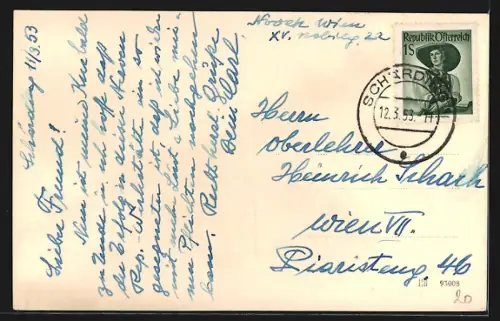 Schärding 11/3.53
Lieber Freund!
Nun ist meine Kur bald
zu Ende u. ich hoffe daß
der Erfolg in dieser Nerven
Rep.-Werkstätte in so
geeignet ist, daß ich wieder
mit mehr Lust u. Liebe mei-
nen Pflichten nachgehen
kann. Recht herzl. Grüße
Dein Karl.
Novak Wien
XV.
22
Republik Österreich
1S
SCHÄRDING
12.3.53.
Herrn
oberlehrer
Heinrich Schach
Wien VII.
Piaristeng. 46
95009
20